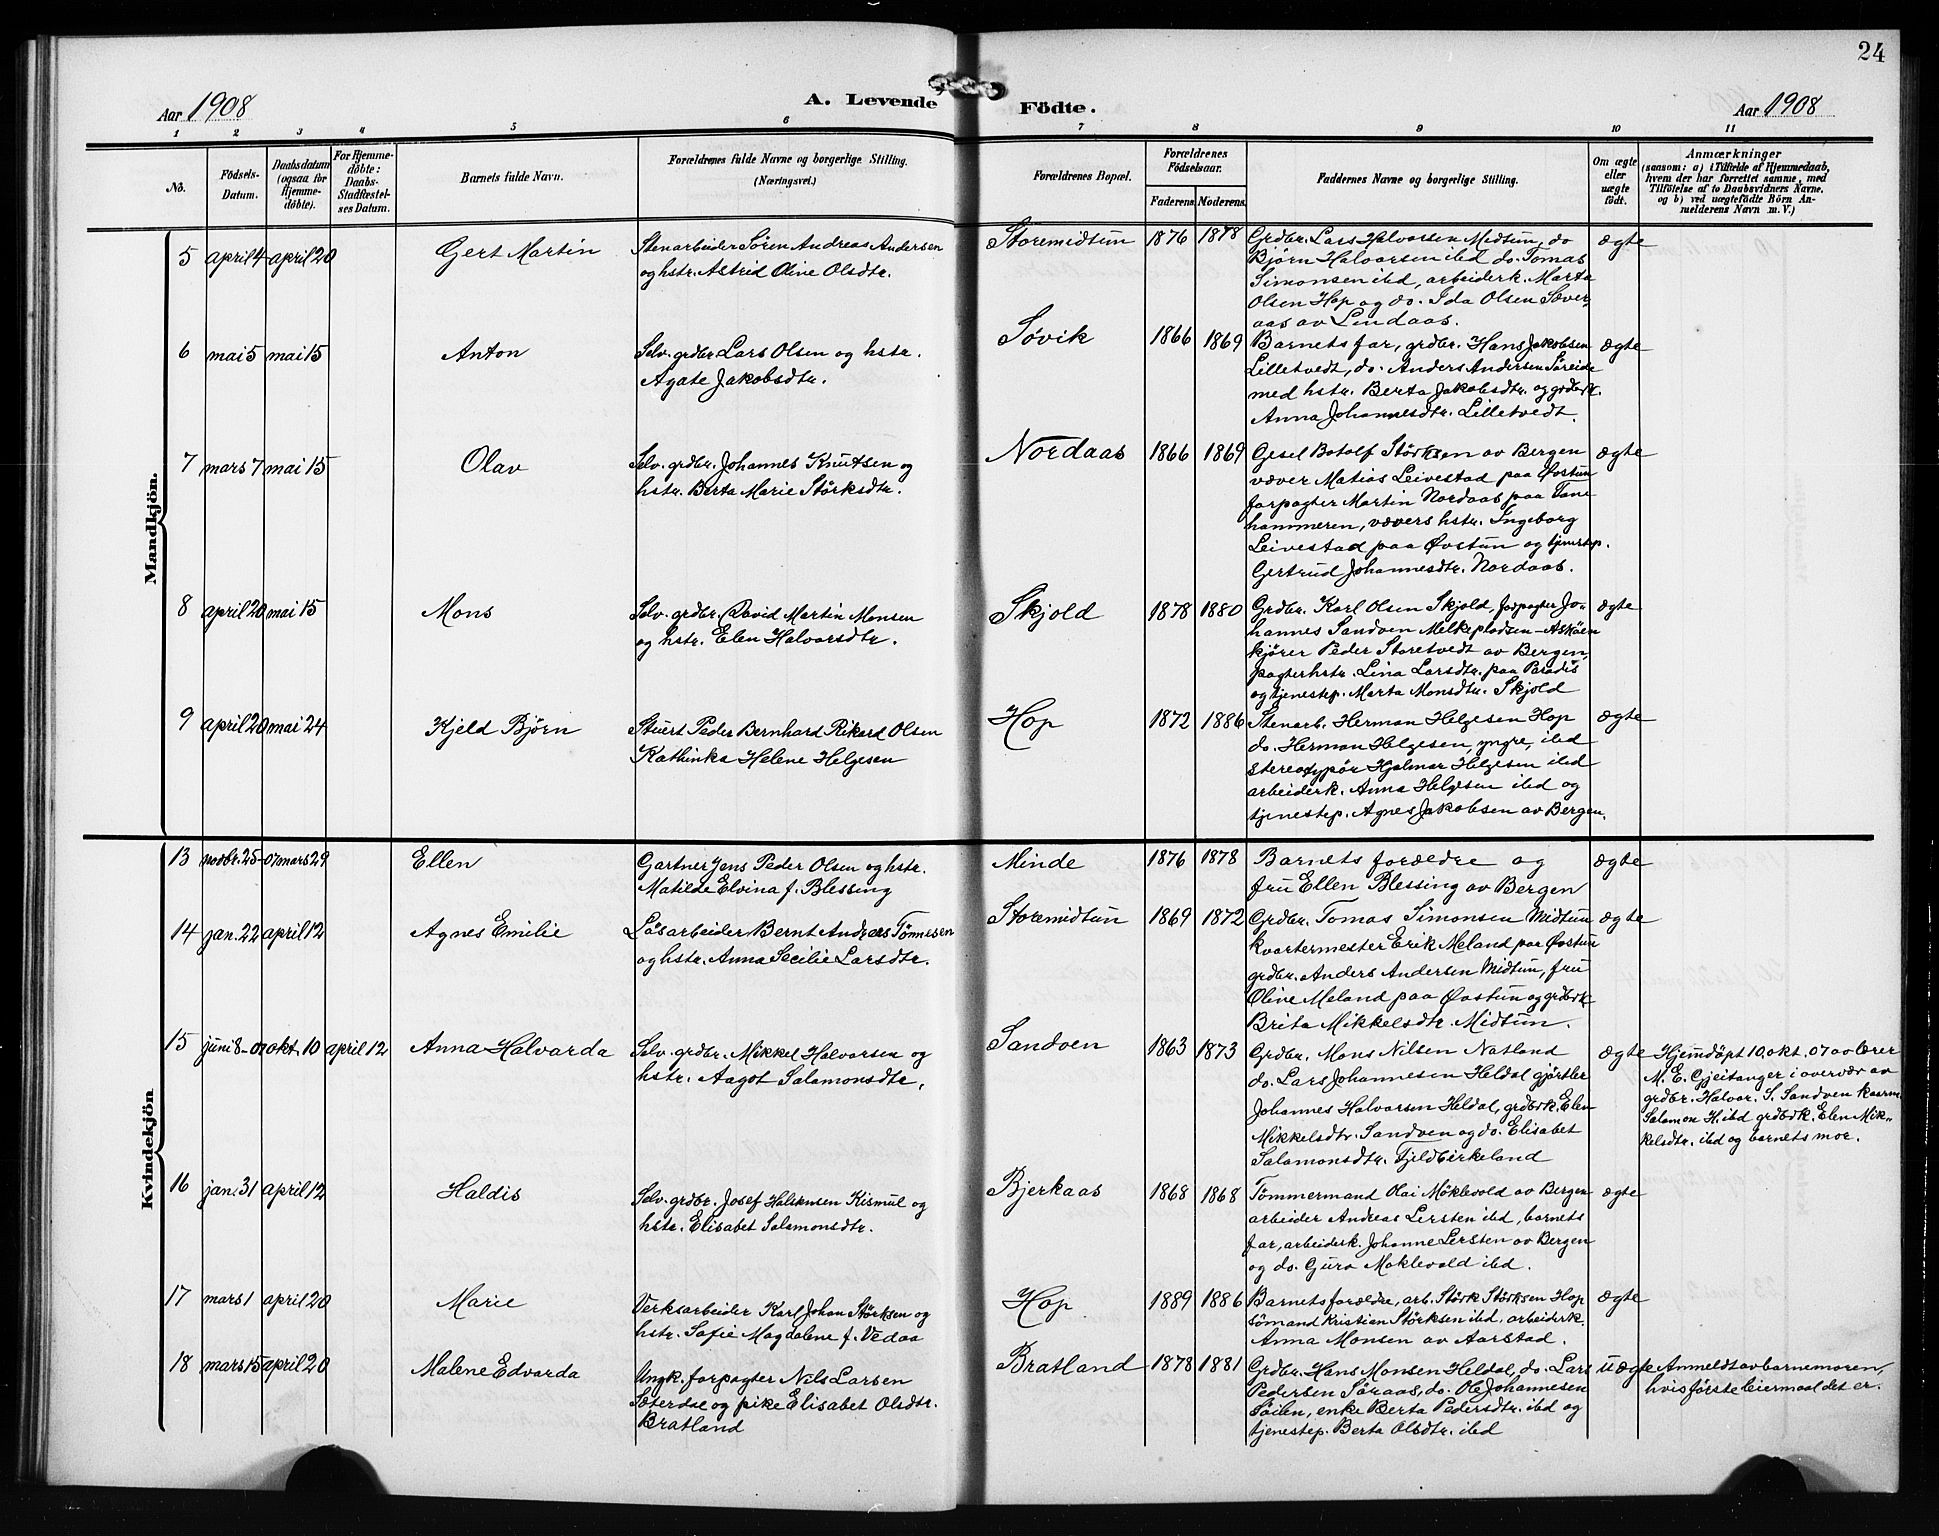 24
Aar 1908
A. Levende
Födte.
Aar 1908
1 2 3 4 5 6 7 8 9 10 11
No.
Födsels-
Datum.
Daabsdatum
(ogsaa for
Hjemme-
döbte).
For Hjemme-
döbte:
Daabs-
Stadfæstel-
ses Datum.
Barnets fulde Navn.
Forældrenes fulde Navne og borgerlige Stilling.
(Næringsvei.)
Forældrenes Bopæl.
Forældrenes
Födselsaar.
Faderens. Moderens.
Faddernes Navne og borgerlige Stilling.
Om ægte
eller
uægte
født.
Anmærkninger
(saasom: a) i Tilfælde af Hjemmedaab,
hvem der har forrettet samme, med
Tilföielse af to Daabsvidners Navne.
og b) ved uægtefödte Börn An-
melderens Navn m. V.)
Mandkjön.
5 april 4 april 20 Gert Martin
Stenarbeider Søren Andreas Andersen
og hstr. Astrid Oline Olsdtr.
Storemidtun 1876 1878
Grdbr. Lars Halvorsen Midtun, do
Bjørn Halvorsen ibd do. Tomas
Simonsen ibd, arbeiderk. Marta
Olsen Hop og do. Ida Olsen Sæver-
aas av Lindaas.
ægte
6 mai 5 mai 15 Anton
Selv. grdbr. Lars Olsen og hstr.
Agate Jakobsdtr.
Søvik 1866 1869
Barnets far, grdbr. Hans Jakobsen
Lilletvedt, do. Anders Andersen Søreide
med hstr. Berta Jakobsdtr. og grdbrk.
Anna Johannesdtr. Lilletvedt.
ægte
7 mars 7 mai 15 Olav
Selv. grdbr. Johannes Knutsen og
hstr. Berta Marie Størksdtr.
Nordaas 1866 1869
Gesel Botolf Størksen av Bergen
væver Matias Leivestad paa Øvstun
forpagter Martin Nordaas paa Tane
hammeren, vævers hstr. Ingeborg
Leivestad paa Øvstun og tjenestep.
Gertrud Johannesdtr. Nordaas.
ægte
8 april 20 mai 15 Mons
Selv. grdbr. David Martin Monsen
og hstr. Elen Halvorsdtr.
Skjold 1878 1880
Grdbr. Karl Olsen Skjold, forpagter Jo-
hannes Sandven Melkepladsen - Askøen
kjører Peder Storetvedt av Bergen,
pagterhstr. Lina Larsdtr. paa Paradis
og tjenestep. Marta Monsdtr. Skjold
ægte
9 april 20 mai 24 Kjeld Bjørn
Stuert Peder Bernhard Rikard Olsen
Kathinka Helene Helgesen
Hop 1872 1886
Stenarb. Herman Helgesen Hop
do. Herman Helgesen, yngre, ibd
stereotypør Hjalmar Helgesen ibd
arbeiderk. Anna Helgesen ibd og
tjenestep. Agnes Jakobsen av Bergen.
ægte
Kvindekjön
13 novbr. 25-07 mars 29 Ellen
Gartner Jens Peder Olsen og hstr.
Matilde Elvina f. Blessing
Minde 1876 1878
Barnets forældre og
fru Ellen Blessing av Bergen
ægte
14 jan. 22 april 12 Agnes Emilie
Løsarbeider Bernt Andreas Tønnesen
og hstr. Anna Secilie Larsdtr.
Storemidtun 1869 1872
Grdbr. Tomas Simonsen Midtun
kvartermester Erik Meland paa Øvstun
grdbr. Anders Andersen Midtun, fru
Oline Meland paa Øvstun og grdbrk
Brita Mikkelsdtr. Midtun.
ægte
15 juni 8-07 okt. 10 april 12 Anna Halvarda
Selv. grdbr. Mikkel Halvorsen og
hstr. Aagot Salamonsdtr.
Sandven 1863 1873
Grdbr. Mons Nilsen Natland
do. Lars Johannesen Heldal gjørtler
Johannes Halvorsen Heldal, grdbrk. Elen
Mikkelsdtr. Sandven og do. Elisabet
Salamonsdtr. Fjeldbirkeland
ægte
Hjemdøpt 10. okt. 07 av lærer
M. E. Gjeitanger i overvær av
grdbr. Halvor. S. Sandven kaarm.
Salamon H. ibd grdbrk. Elen Mik-
kelsdtr. ibd og barnets mor.
16 jan. 31 april 12 Haldis
Selv. grdbr. Josef Halstensen Kismul og
hstr. Elisabet Salamonsdtr.
Bjerkaas 1868 1868
Tømmermand Olai Møklevold av Bergen
arbeider Andreas Lersten ibd, barnets
far, arbeiderk. Johanne Lersten av Bergen
og do. Guro Moklevold ibd.
ægte
17 mars 1 april 20 Marie
Verksarbeider Karl Johan Størksen og
hstr. Sofie Magdalene f. Vedaa
Hop 1889 1886
Barnets forældre, arb. Størk Størksen Hop
sømand Kristian Størksen ibd, arbeiderk.
Anna Monsen av Aarstad.
ægte
18 mars 15 april 20 Malene Edvarda
Ungk. forpagter Nils Larsen
Sæterdal og pike Elisabet Olsdtr.
Bratland
Bratland 1878 1881
Grdbr. Hans Monsen Heldal, do. Lars
Pedersen Søraas, do. Ole Johannesen
Søilen, enke Berta Pedersdtr. ibd og
tjenestep. Berta Olsdtr. ibd
uægte
Anmeldt av barnemoren,
hvis første leiermaal det er.